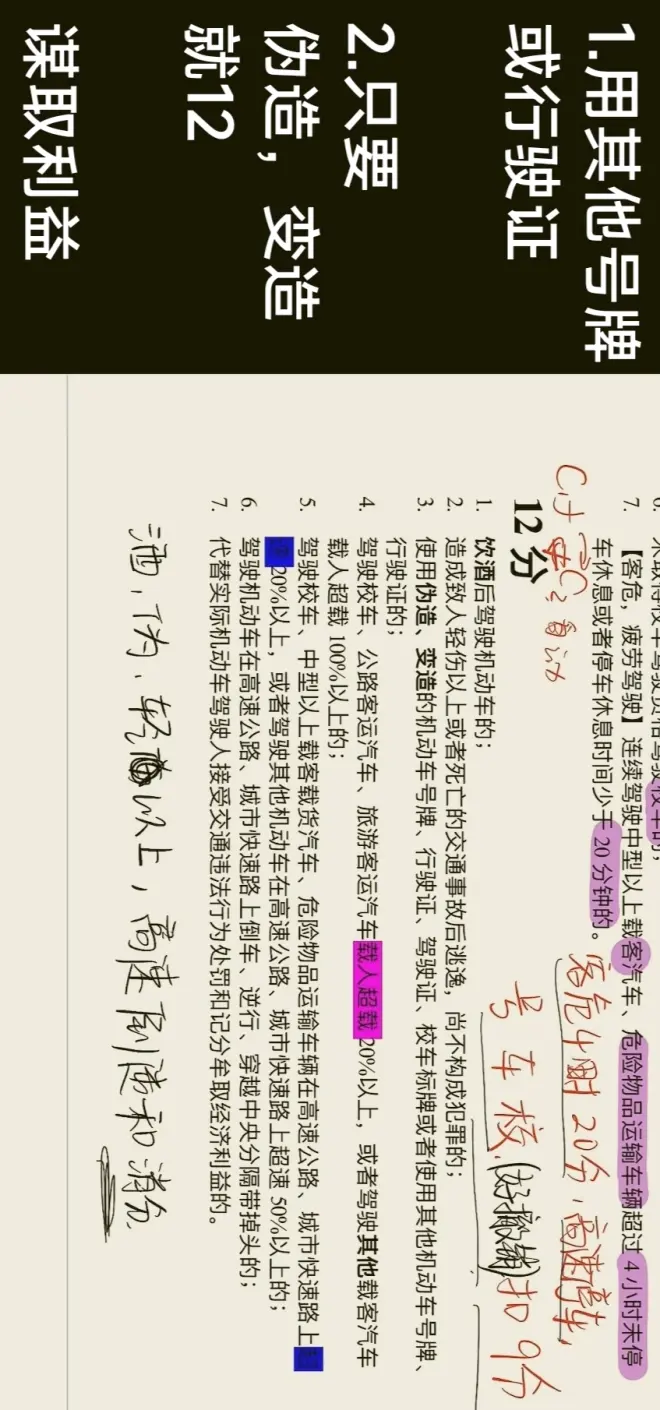 1.用其他号牌
或行驶证
2.只要
伪造，变造
就12
谋取利益
7. 【客危，疲劳驾驶】连续驾驶中型以上载客汽车、危险物品运输车辆超过 4 小时未停
车休息或者停车休息时间少于 20 分钟的。
客危4时 20分，高速停车，
号 车 校 扣 9分
12 分
1. 饮酒后驾驶机动车的；
2. 造成致人轻伤以上或者死亡的交通事故后逃逸，尚不构成犯罪的；
3. 使用伪造、变造的机动车号牌、行驶证、驾驶证、校车标牌或者使用其他机动车号牌、
行驶证的；
4. 驾驶校车、公路客运汽车、旅游客运汽车载人超载 20%以上，或者驾驶其他载客汽车
载人超载 100%以上的；
5. 驾驶校车、中型以上载客载货汽车、危险物品运输车辆在高速公路、城市快速路上
20%以上，或者驾驶其他机动车在高速公路、城市快速路上超速 50%以上的；
6. 驾驶机动车在高速公路、城市快速路上倒车、逆行、穿越中央分隔带掉头的；
7. 代替实际机动车驾驶人接受交通违法行为处罚和记分牟取经济利益的。
酒，伪，轻 以上，高速 和 消分